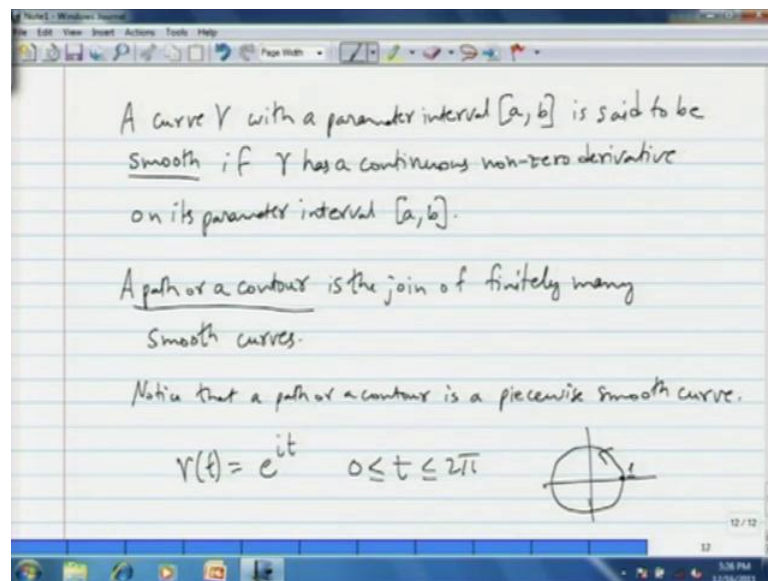 Note1 - Windows Journal
File Edit View Insert Actions Tools Help
Page Width
A curve γ with a parameter interval [a, b] is said to be
smooth if γ has a continuous non-zero derivative
on its parameter interval [a, b].
A path or a contour is the join of finitely many
smooth curves.
Notice that a path or a contour is a piecewise smooth curve.
γ(t) = e^{it} 0 ≤ t ≤ 2π
1
12 / 12
12
5:26 PM